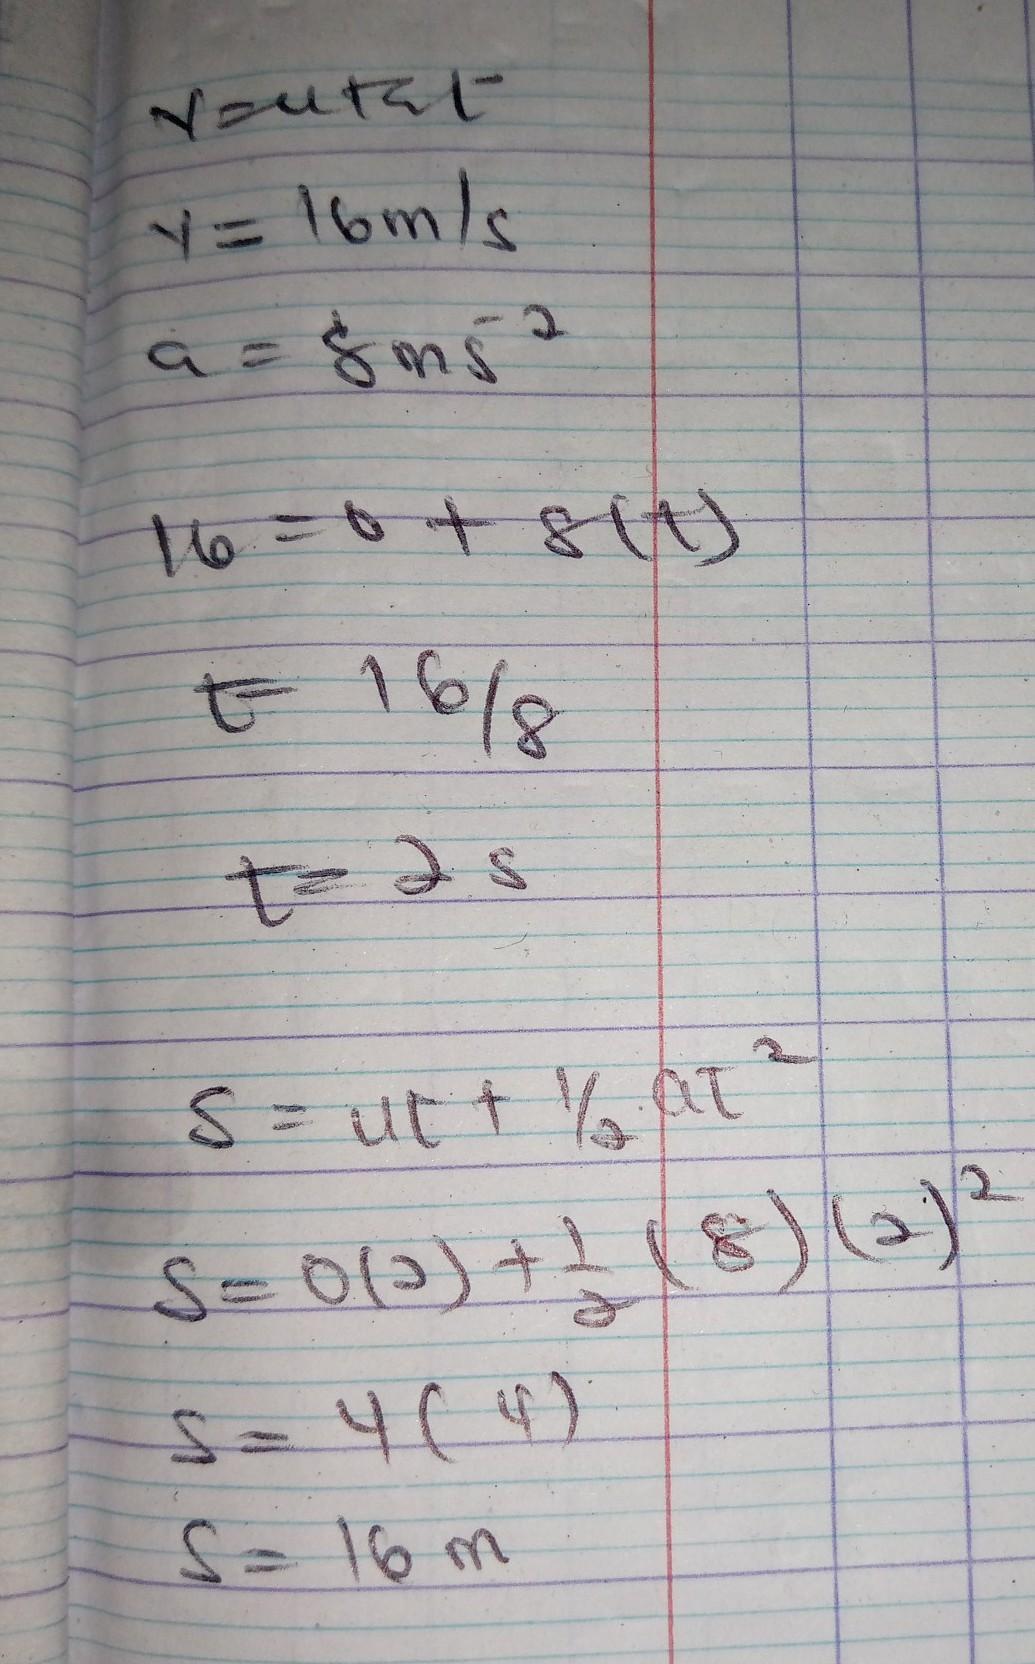 v=u+at
v= 16m/s
a = 8ms⁻²
16 = 0 + 8(t)
t= 16/8
t= 2 s
S = ut + 1/2 at²
S= 0(2) + 1/2 (8) (2)²
S= 4( 4)
S= 16 m